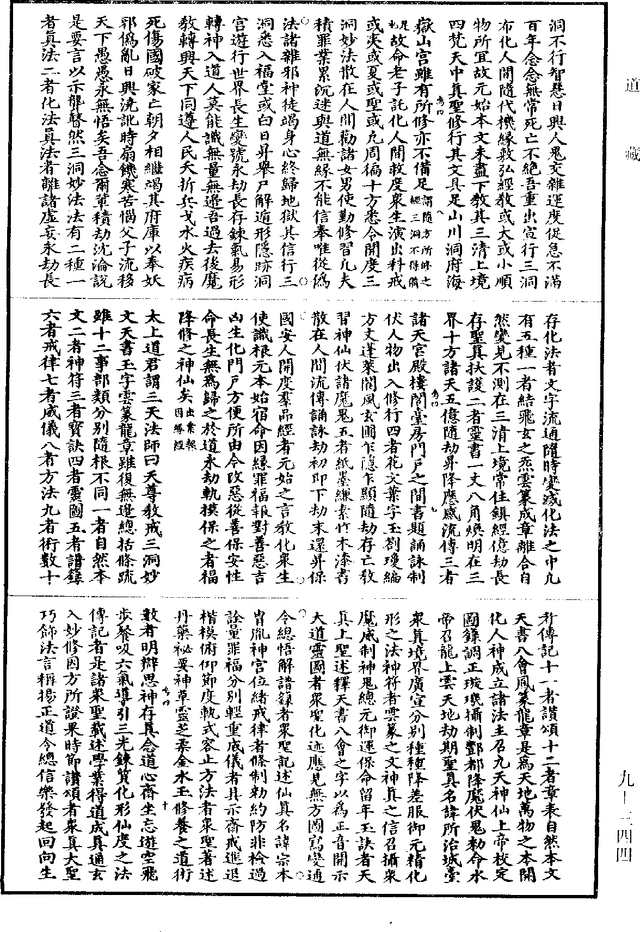 道藏
洞不行智慧日興人鬼交雜運度促急不滿
百年念念無常死亡不絕吾重出宣行三洞
布化人開隨代機緣敎弘經敎或大或小順
物所宜故元始本文未盡下敎其三清上境
四梵天中真聖修行其文具足山川洞府海
嶽山宮雖有所修亦不備足謂隨方所修之經三洞不備
足也故命老子託化人間敎度衆生演出科戒
或夷或夏或聖或凡周徧十方悉令開度三
洞妙法散在人間勸諸女男使勤修習凡夫
積罪業累沉迷與道無緣不能信奉唯從僞
法諸雜邪神徒竭身心終歸地獄其信行三
洞悉入福堂或白日昇舉尸解遁形隱跡洞
宮遊行世界長生變號永劫長存鍊氣易形
轉神入道人莫能識無量無邊吾過去後魔
敎轉興天下同遵人民夭折兵戈水火疾病
死傷國破家亡朝夕相繼竭其府庫以奉妖
邪僞亂日興流訛時扇饑寒苦惱父子流移
天下愚愚永無悟矣吾念爾輩積劫沈淪說
是要言以示聾瞽然三洞妙法法有二種一
者真法二者化法真法者離諸虛妄永劫長
存化法者文字流通隨時變滅化法之中凡
有五種一者結飛玄之炁雲篆成章離合自
然變見不測在三清上境常住鎮經億劫長
存聖真扶護二者靈書一丈八角煥明在三
界十方諸天五億隨劫昇降應感流傳三者
諸天宮殿樓閣臺房門戶之間書題誦詠制
伏人物出入修行四者花文葉字玉劄瓊編
方丈蓬萊閬風玄圃乍隱乍顯隨劫存亡敎
習神仙伏諸魔鬼五者紙墨縑素竹木漆書
散在人間流傳誦詠劫初即下劫末還昇保
國安人開度羣品經者元始之言敎化衆生
使識根元本始宿命因緣罪福報對善惡吉
凶生化門戶方便所由令改惡從善保安性
命長生無爲歸之於道永劫軌模保之者福
降修之神仙矣出業報因緣經
太上道君謂三天法師曰天尊敎戒三洞妙
文天書玉字雲篆龍章雖復無邊總括條疏
雖十二事部類分別隨根不同一者自然本
文二者神符三者寶訣四者靈圖五者譜錄
六者戒律七者威儀八者方法九者術數十
者傳記十一者讚頌十二者章表自然本文
天書八會鳳篆龍章是爲天地萬物之本開
化人神成立諸法主召九天神仙上帝校定
圖錄調正璇璣攝制酆都降魔伏鬼勑命水
帝召龍上雲天地劫期聖真名諱所治城臺
衆真境界廣宣分別種種降差服御元精化
形之法神符者雲篆之文神真之信召攝衆
魔威制神鬼總元御運保命留年玉訣者天
真上聖述釋天書八會之字以爲正音開示
大道靈圖者衆聖化迹應見無方圖寫變通
令總悟解譜錄者衆聖記述仙真名諱宗本
胄胤神宮位緒戒律者條制勑約防非檢過
詮量罪福分別輕重威儀者具示齋戒進退
楷模俯仰節度軌式容止方法者衆聖著述
丹藥祕要神草靈芝柔金水玉修養之道術
數者明辯思神存真念道心齋坐忘遊空飛
步餐吸六氣導引三光鍊質化形仙度之法
傳記者是諸衆聖載述學業得道成真通玄
入妙修因方所證果時節讚頌者衆真大聖
巧飾法言稱揚正道令總信樂發起回向生
九—三四四